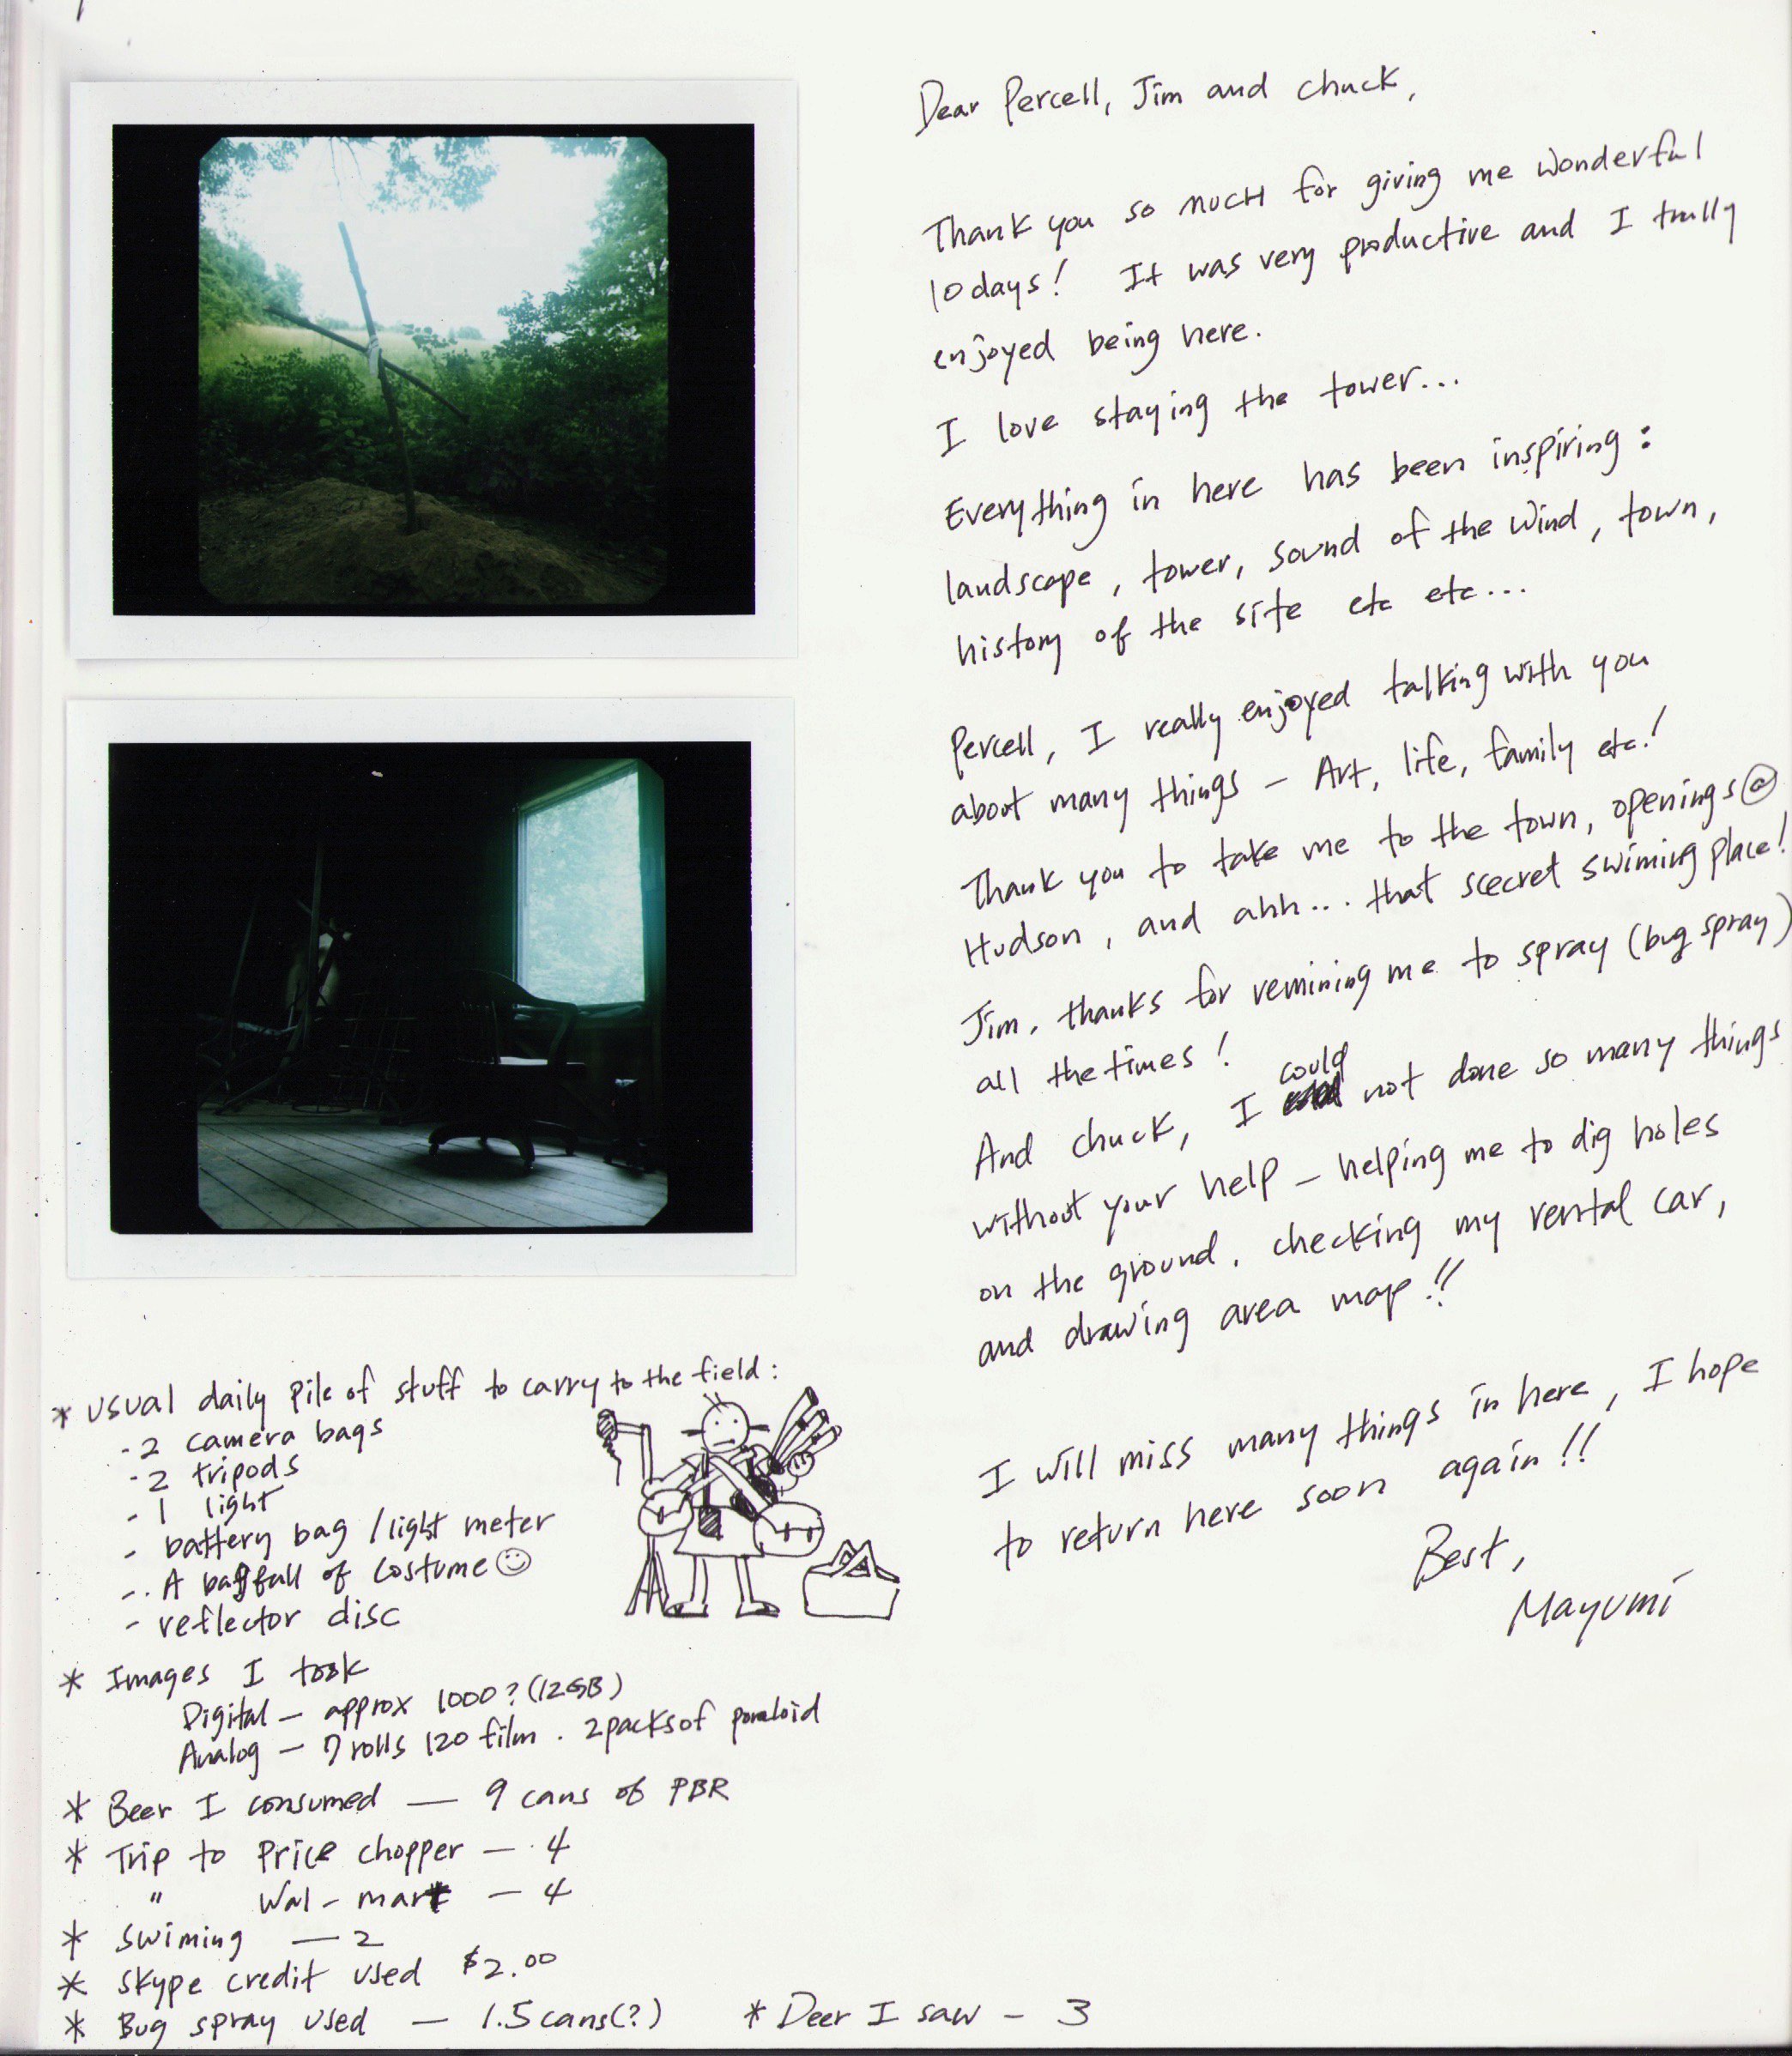 Dear Percell, Jim and chuck,
Thank you so much for giving me wonderful
10 days! It was very productive and I trully
enjoyed being here.
I love staying the tower...
Everything in here has been inspiring:
landscape, tower, sound of the wind, town,
history of the site etc etc...
Percell, I really enjoyed talking with you
about many things – Art, life, family etc.!
Thank you to take me to the town, openings @
Hudson, and ahh... that scecret swiming place!
Jim, thanks for remining me to spray (bug spray)
all the times!
And chuck, I could not done so many things
without your help – helping me to dig holes
on the ground, checking my rental car,
and drawing area map!!
I will miss many things in here, I hope
to return here soon again!!
Best,
Mayumi
* usual daily pile of stuff to carry to the field:
- 2 camera bags
- 2 tripods
- 1 light
- battery bag / light meter
- A bagfull of costume ☺
- reflector disc
* Images I took
Digital – approx 1000? (12GB)
Analog – 7 rolls 120 film. 2 packs of poraloid
* Beer I consumed — 9 cans of PBR
* Trip to Price chopper — 4
" Wal-mart — 4
* swiming — 2
* skype credit used $2.00
* Bug spray used — 1.5 cans(?)
* Deer I saw – 3